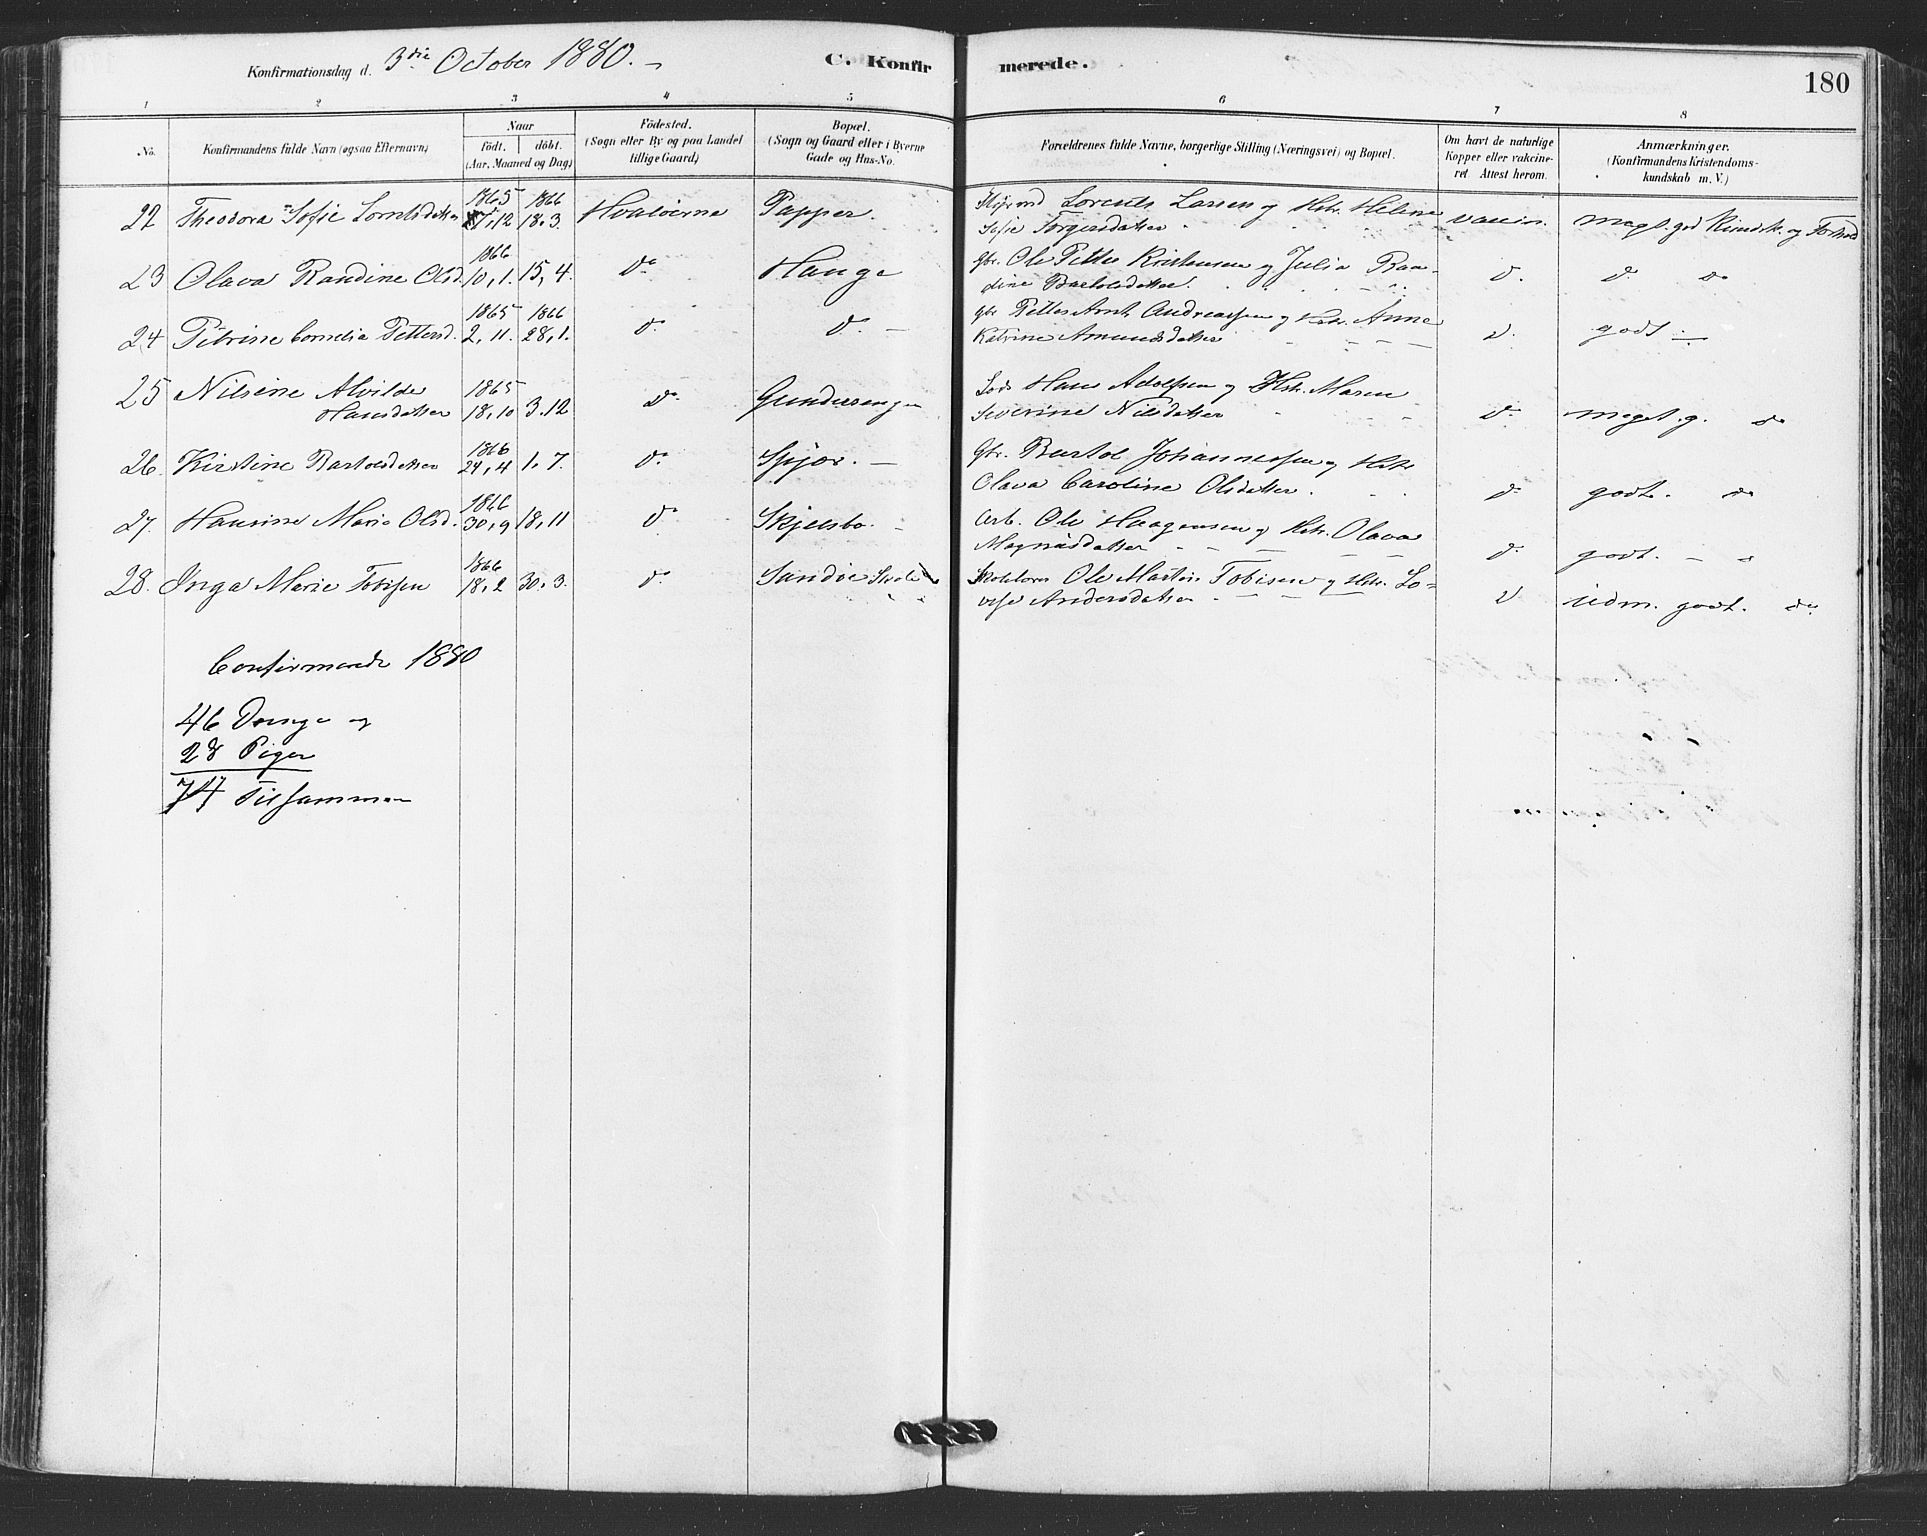 Konfirmationsdag d. 3die October 1880. –
C. Konfirmerede.
180
1 2 3 4 5 6 7 8
No. Konfirmandens fulde Navn (ogsaa Efternavn)
Naar födt. döbt. (Aar, Maaned og Dag)
Födested. (Sogn eller By og paa Landet tillige Gaard)
Bopæl. (Sogn og Gaard eller i Byerne Gade og Hus-No.
Forældrenes fulde Navne, borgerlige Stilling (Næringsvei) og Bopæl.
Om havt de naturlige Kopper eller vakcineret. Attest herom.
Anmærkninger. (Konfirmandens Kristendomskundskab m. V.)
1865 1866
22 Theodora Sofie Lorntsdatter 12 18.3 Hvaløerne Papper. Lorents Larsen og Hstr. Helene vaccin. megt. god Kundsk. og Forhold
Sofie Torgersdatter
1866
23 Olava Randine Olsd. 10,1. 15,4. do Hauge Gbr. Ole Petter Kristensen og Julia Raa-
dine Bartolsdatter. d. d. do
1865 1866
24 Petrine Cornelia Pettersd. 2,11. 28,1. do d. – gbr Petter Arnt Andreassen og Hstr. Anne
Katrine Amundsdatter d. godt –
25 Nilsine Alvilde 1865 Hans Adolfsen og Hstr. Maren
Hansdatter 18,10 3.12 do Gunderengen Severine Nilsdatter d. meget g. do
1866
26 Kirstine Bartolsdatter 24,4 1.7. do Spjær. – Gbr. Bartol Johannessen og Hstr
Olava Caroline Olsdatter. d. godt. do
1866
27. Hansine Marie Olsd. 30,9 18,11 do Skjelsbo. – Arb. Ole Haagensen og Hstr. Olava
Magnusdatter d. godt. –
1866
28. Inga Marie Tobisen 18,2 30.3. do Sandø Skole Skolelærer Ole Martin Tobisen og Hstr. Lo-
vise Andersdatter d udm. godt. do.
Confirmerede 1880
46 Drenge og
28 Piger
74 Tilsammen